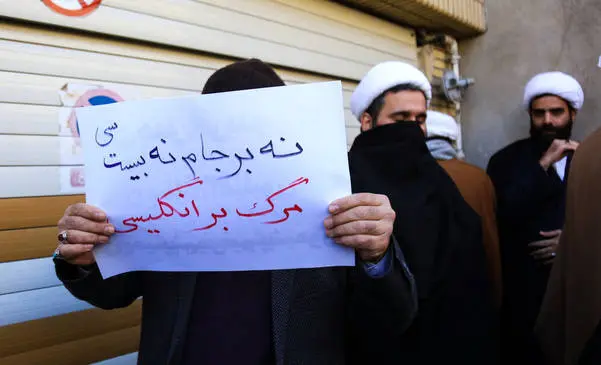 نه برجام نه بیست سی
مرگ بر انگلیسی